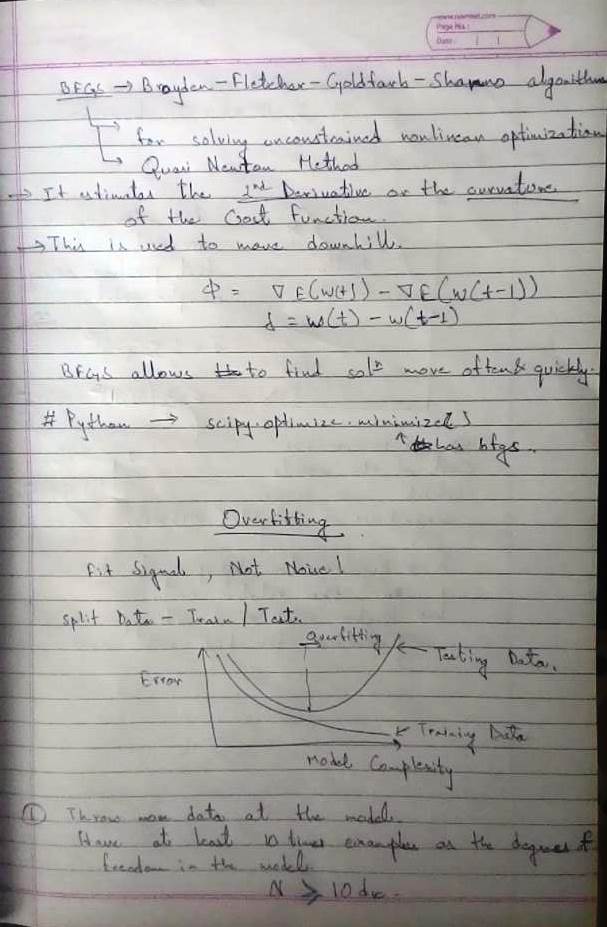 www.navneet.com
Page No.:
Date: / /
BFGS → Broyden-Fletcher-Goldfarb-Shanno algorithm
for solving unconstrained nonlinear optimization
Quasi Newton Method
→ It estimates the 2nd Derivative or the curvature
of the Cost Function.
→ This is used to move downhill.
Φ = ∇E(w(t)) - ∇E(w(t-1))
δ = w(t) - w(t-1)
BFGS allows to find solⁿ more often & quickly.
# Python → scipy.optimize.minimize()
↑ has bfgs.
Overfitting
Fit Signal, Not Noise!
Split Data - Train / Test.
overfitting
← Testing Data.
Error
← Training Data
Model Complexity
① Throw more data at the model.
Have at least 10 times examples as the degrees of
freedom in the model.
N ⩾ 10 dvc.